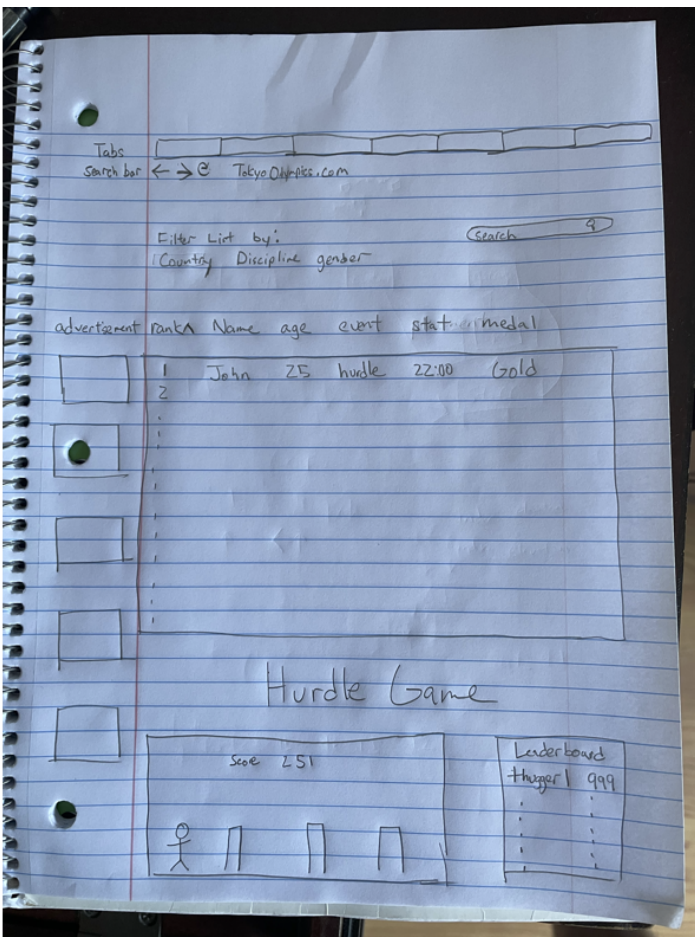 Tabs
Search bar ← → TokyoOlympics.com
Filter List by:
Country Discipline gender
Search
advertisement rank^ Name age event stat medal
1 John 25 hurdle 22:00 Gold
2
Hurdle Game
Score 251
Leaderboard
thugger1 999